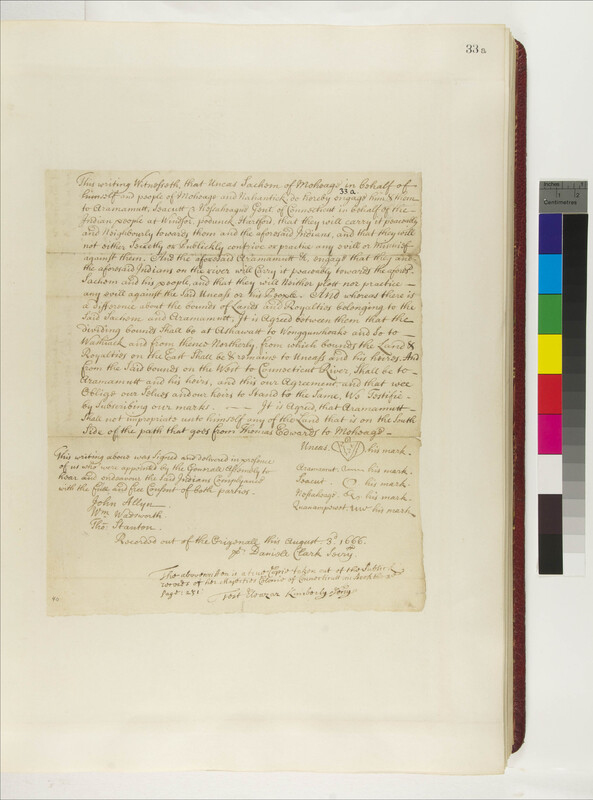 33a
This writing Witnesseth, that Uncas Sachem of Mohoags in behalf of
33 a
himself and people of Mohoags and Nahantick do hereby engage him & them
to Aramamutt, Seacutt & Nesahegus Gent. of Connecticut in behalf of the
Indian people at Windsor, podunck, Hartford, that they will carry it peaceably
and Neighbourly towards them and the aforesaid Indians, and that they will
not either Secretly or Publickly contrive or practice any evill or Mischief
against them. And the aforesaid Aramamutt &c engage that they and
the aforesaid Indians on the river will Carry it peaceably towards the aforesd
Sachem and his people, and that they will Neither plott nor practice
any evill against the said Uncass or his People. And whereas there is
a difference about the bounds of Lands and Royalties belonging to the
said Sachems and Aramamutt. It is Agreed between them that the
dividing bounds Shall be at Ashawatt to Wongunshoake and so to
Washiack and from thence Northerly from which bounds the Land &
Royalties on the East Shall be & remaine to Uncass and his heires. And
from the said bounds on the West to Connecticut River, Shall be to
Aramamutt and his heirs, and this our Agreement and that wee
Obleige our Selves and our heirs to Stand to the Same, We Testifie
by Subscribing our marks. - - - It is Agreed, that Aramamutt
Shall not impropriate unto himself any of the Land that is on the South
Side of the path that goes from Thomas Edwards to Mohoags
Uncas. his mark.
This writing above was Signed and delivered in presence
of us who were appointed by the Generall Assembly to
hear and endeavour the said Indians Complyance
with the full and free Consent of both parties.
Aramamut. his mark.
Seacut. his mark.
Nesahegus. his mark.
Quanampewet his mark
John Allyn.
Wm Wadsworth
Tho: Stanton.
Recorded out of the Origenall this August 3d. 1666.
pr Daniell Clark Secry.
The above written is a true Copie taken out of the Publick
records of his Majesties Colonie of Connecticut
Page:
Test Eleazar Kimberly Secry.
inches
1
2
Centimetres